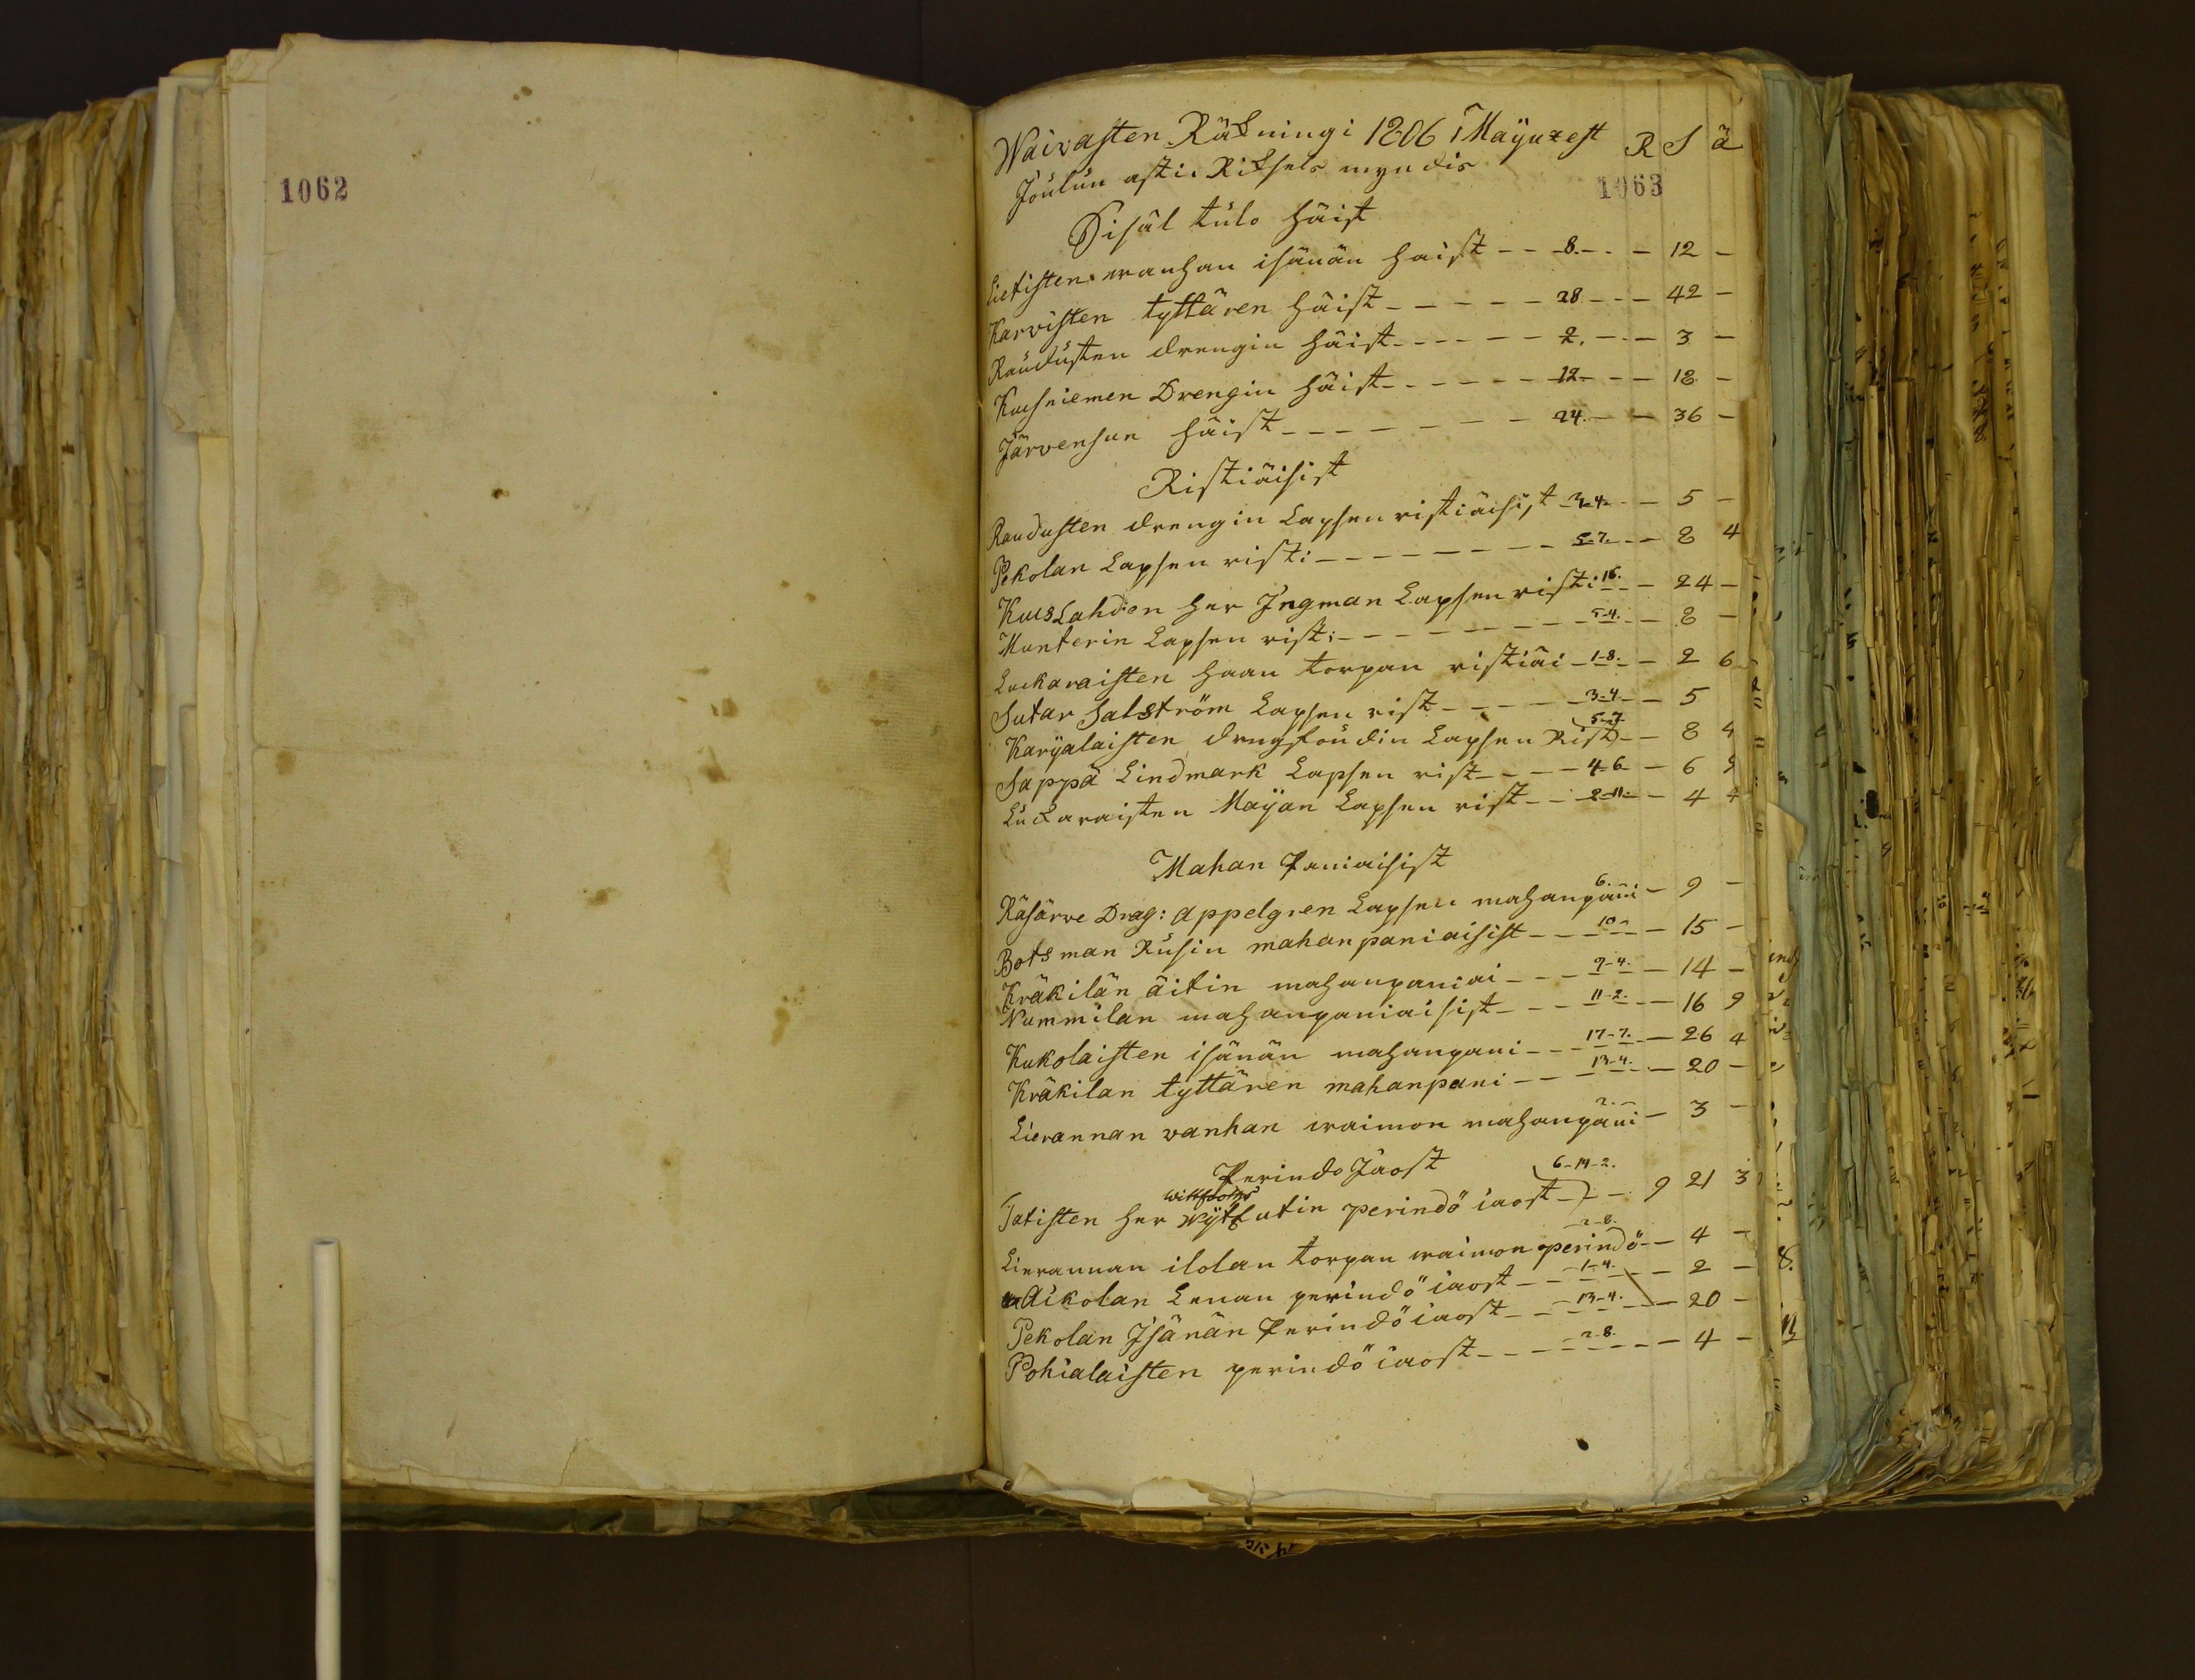 1062
Waivasten Räkningi 1806 Mayuxest R S ä
Joulun asti Riksels myndis
1063
Sisäl tulo häist
Lietisten wanhan isänän haist - - 8. - - 12 -
Karvisten tyttären häist - - - - - 28 - - - 42 -
Raudusten drengin häist - - - - - 2. - - - 3 -
Kuusniemen Drengin häist - - - - - 12 - - - 18 -
Järvensun häist - - - - - - 24. - - 36 -
Ristiäisist
Raudusten drengin Lapsen ristiäisist 3-4 - - 5 -
Pekolan Lapsen risti - - - - - - 5-7. - - 8 4
Kuuslahden her Ingman Lapsen risti 16. - - 24 -
Munterin Lapsen rist: - - - - - - 5-4. - - 8 -
Luckaraisten haan torpan ristiäi - 1-8. - - 2 6
Sutar Salström Lapsen rist - - - - 3-4 - - 5
Karyalaisten drengfoudin Lapsen Rist 5-7 - - 8 4
Sappä Lindmark Lapsen rist - - - 4-6 - 6 9
Luckaraisten Mayan Lapsen rist - - 2-11 - - 4 4
Mahan Paniaisist
Räsärve Drag: Appelgren Lapsen mahanpani 6. - 9 -
Botsman Rusin mahanpaniaisist - - - 10 - - 15 -
Kräkilän äitin mahanpaniai - - - 9-4. - 14 -
Nummilan mahanpaniaisist - - - 11-2. - - 16 9
Kukolaisten isänän mahanpani - - - 17-7. - 26 4
Kräkilan tyttären mahanpani - - 13-4. - - 20 -
Lierannan vanhan waimon mahanpani 2. - 3 -
Perindo Jaost
Tatisten her perindö iaost 6-14-2. - - 9 21 3
Lierannan ilolan torpan waimon perindö 2-8. - - 4 -
Aikolan Lenan perindö iaost - - 1-4. - - 2 -
Pekolan Isänän Perindö iaost - - 13-4. - - 20 -
Pohialaisten perindö iaost - - - 2-8. - - 4 -